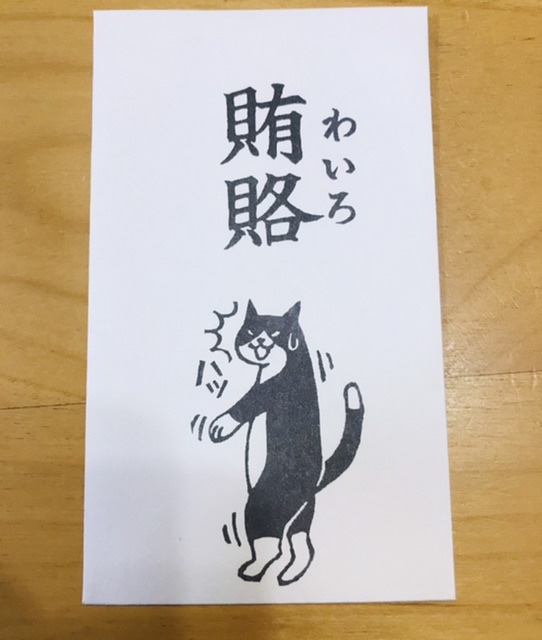 賄賂
わいろ
ハッ